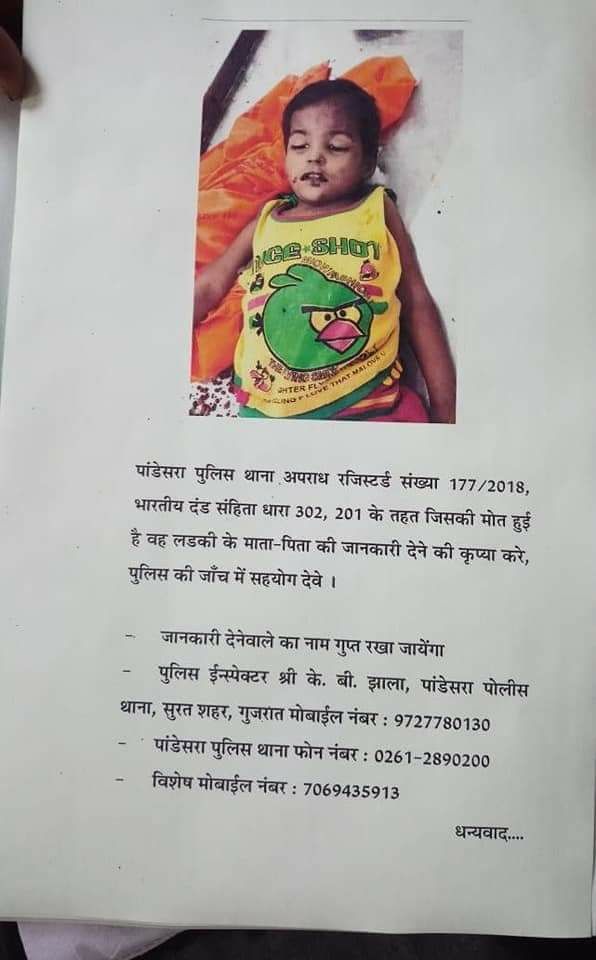 ICE★SHOT
THE KING SHOT
GHTER FL
LOVE THAT MALOVE U
पांडेसरा पुलिस थाना अपराध रजिस्टर्ड संख्या 177/2018,
भारतीय दंड संहिता धारा 302, 201 के तहत जिसकी मोत हुई
है वह लडकी के माता-पिता की जानकारी देने की कृप्या करे,
पुलिस की जाँच में सहयोग देवे ।
- जानकारी देनेवाले का नाम गुप्त रखा जायेंगा
- पुलिस ईन्स्पेक्टर श्री के. बी. झाला, पांडेसरा पोलीस
थाना, सुरत शहर, गुजरात मोबाईल नंबर : 9727780130
- पांडेसरा पुलिस थाना फोन नंबर : 0261-2890200
- विशेष मोबाईल नंबर : 7069435913
धन्यवाद....